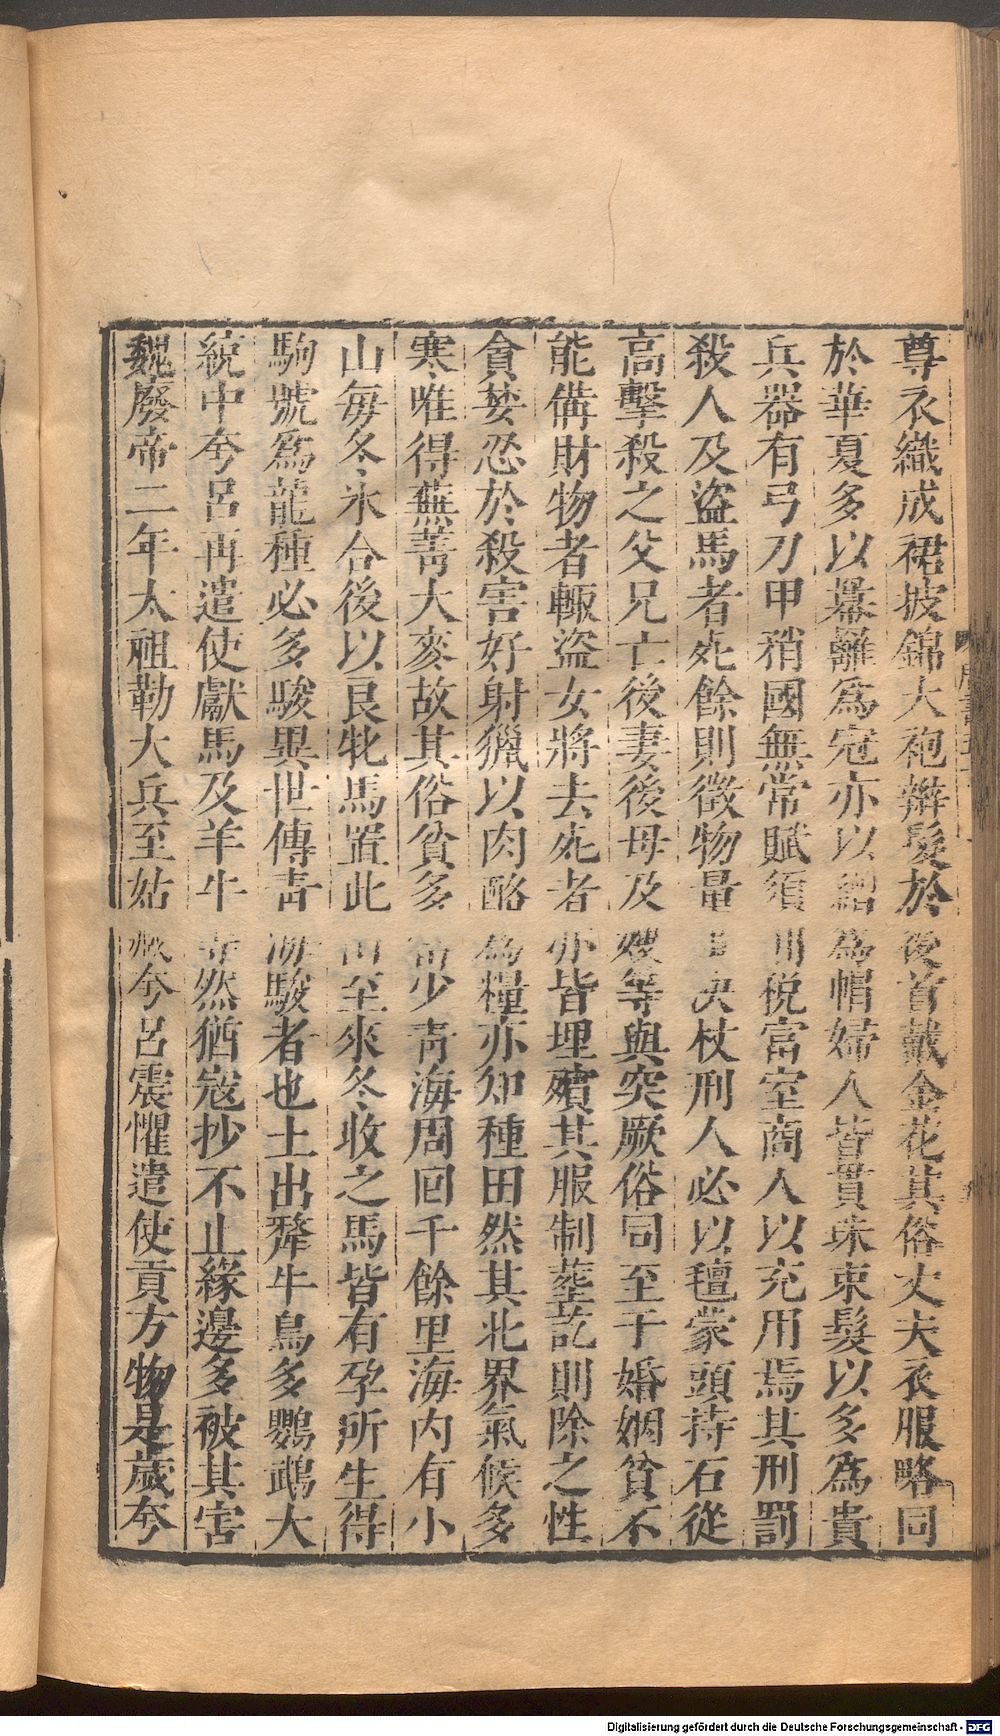 尊衣織成裙披錦大袍辮髮於後首戴金花其俗丈夫衣服略同
於華夏多以羃䍦爲冠亦以繒爲帽婦人皆貫珠束髮以多爲貴
兵器有弓刀甲矟國無常賦須則稅富室商人以充用焉其刑罰
殺人及盜馬者死餘則徵物量事決杖刑人必以氊蒙頭持石從
高擊殺之父兄亡後妻後母及嫂等與突厥俗同至于婚姻貧不
能備財物者輙盜女將去死者亦皆埋殯其服制葬訖則除之性
貪婪忍於殺害好射獵以肉酪爲糧亦知種田然其北界氣候多
寒唯得蕪菁大麥故其俗貧多富少靑海周回千餘里海內有小
山每冬氷合後以良牝馬置此山至來冬收之馬皆有孕所生得
駒號爲龍種必多駿異世傳靑海駿者也土出犛牛鳥多鸚鵡大
統中夸呂再遣使獻馬及羊牛等然猶寇抄不止緣邊多被其害
魏廢帝二年太祖勒大兵至姑臧夸呂震懼遣使貢方物是歲夸
Digitalisierung gefördert durch die Deutsche Forschungsgemeinschaft - DFG